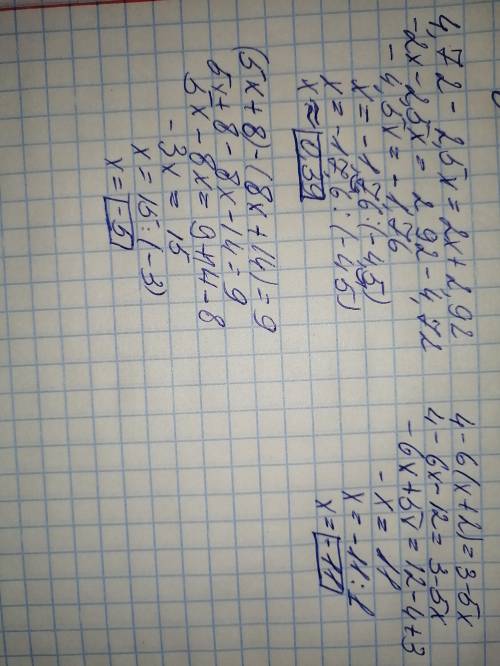 4,72 - 2,5x = 2x + 2,92
-2x - 2,5x = 2,92 - 4,72
- 4,5x = - 1,76
x = - 1,76 : (-4,5)
x = - 176 : (-45)
x ≈ 0,39
(5x + 8) - (8x + 14) = 9
5x + 8 - 8x - 14 = 9
5x - 8x = 9 + 14 - 8
- 3x = 15
x = 15 : (-3)
x = -5
4 - 6(x + 2) = 3 - 5x
4 - 6x - 12 = 3 - 5x
- 6x + 5x = 12 - 4 + 3
- x = 11
x = - 11 : 1
x = -11